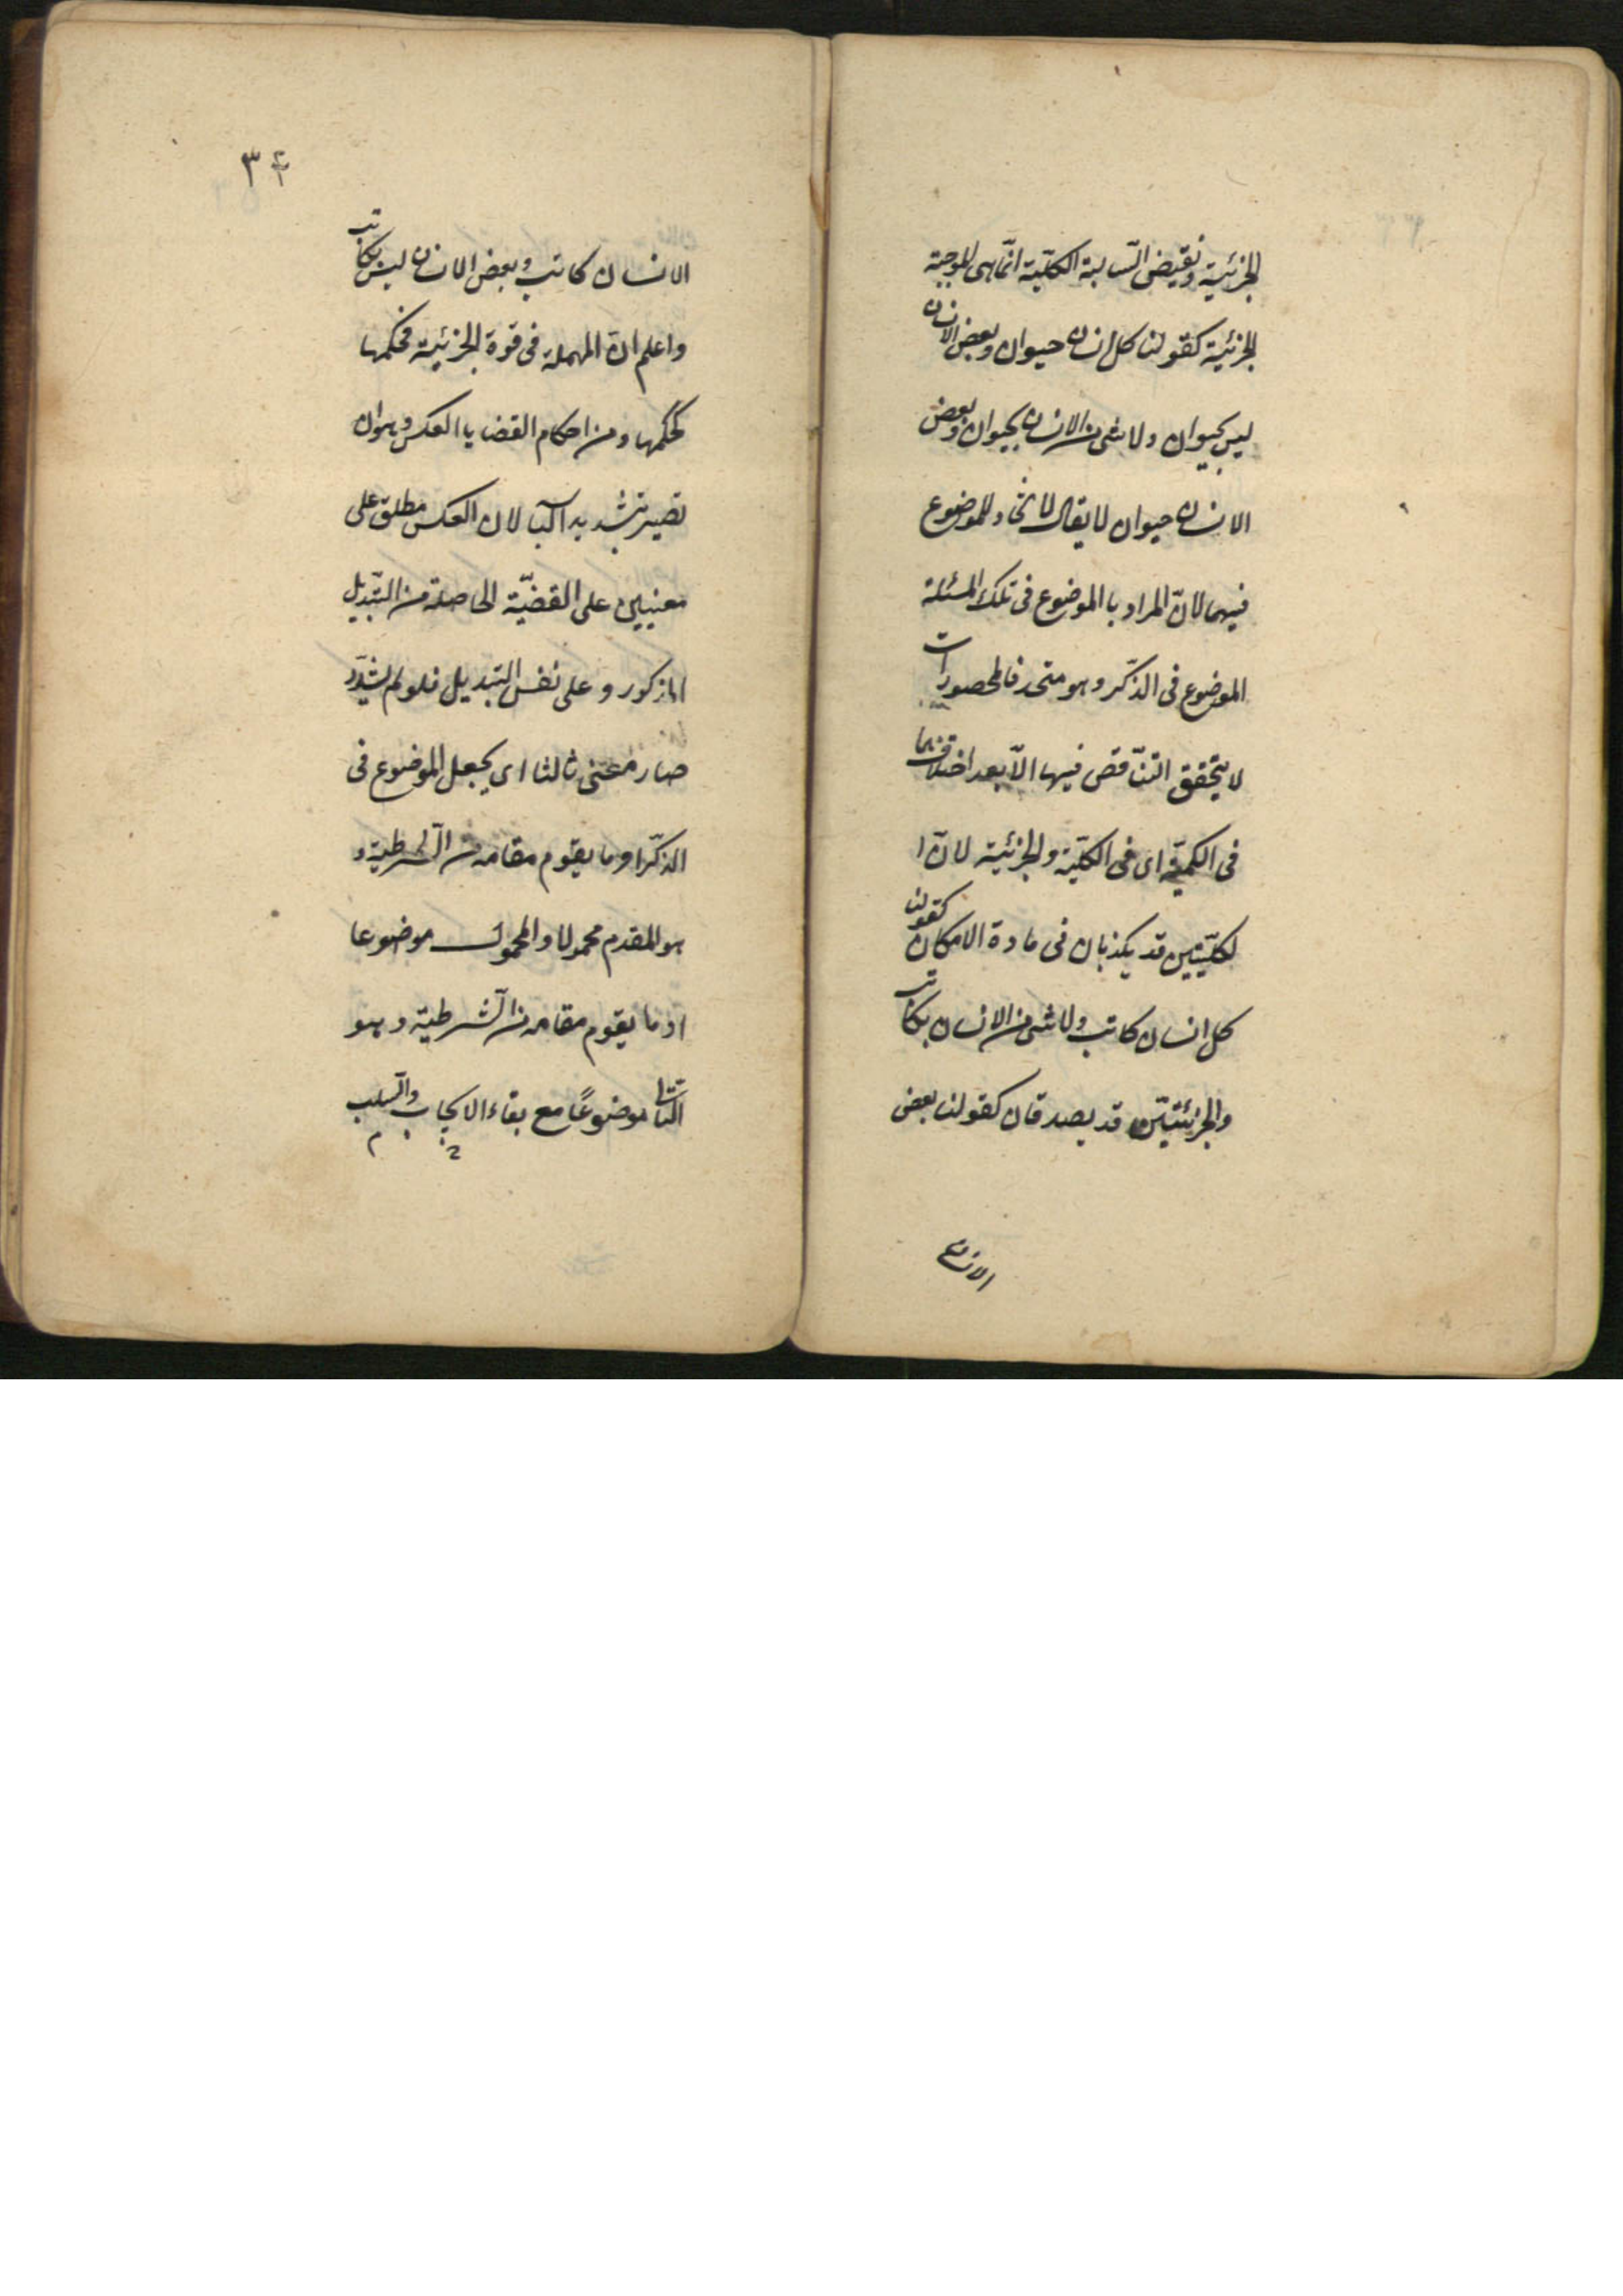 الجزئية ونقيض السّالبة الكلّية انّما هى الموجبة
الجزئية كقولنا كل انسان حيوان وبعض الانسان
ليس بحيوان ولا شئ من الانسان بحيوان وبعض
الانسان حيوان لا يقال لا اتحاد للموضوع
فيهما لانّ المراد بالموضوع فى تلك المسئلة
الموضوع فى الذّكر وهو متحد فالمحصورات
لا يتحقق التنّاقض فيها الاّ بعد اختلافهما
فى الكميّة اى فى الكلّيّة والجزئية لانّ ا
لكلّيّتين قد يكذبان فى مادة الامكان كقولنا
كل انسان كاتب ولا شئ من الانسان بكاتب
والجزئيّتين قد يصدقان كقولنا بعض
الانسان
٣٤
الانسان كاتب وبعض الانسان ليس بكاتب
واعلم ان المهملة فى قوة الجزئية فحكمها
كحكمها ومن احكام القضايا العكس وهو ان
تصير بتشديد اليا لان العكس مطلق على
معنيين على القضيّة الحاصلة من التّبديل
المذكور وعلى نفس التبديل فلو لم يشدّد
صار معنى ثالثا اى يجعل الموضوع فى
الذّكر او ما يقوم مقامه من الشرطية و
هو المقدم محمولا والمحمول موضوعا
او ما يقوم مقامه من الشرطية وهو
التالى موضوعًا مع بقاء الايجاب والسّلب